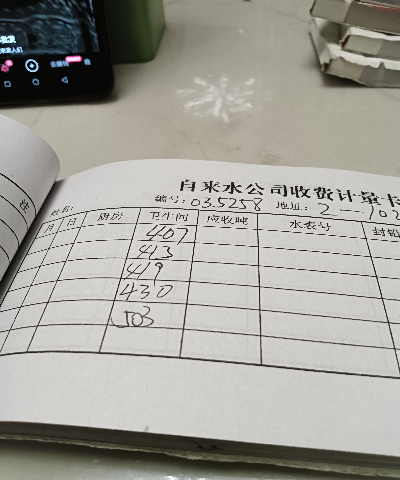 自来水公司收费计量卡
姓名: 编号: 03.5258 地址: 2-102
月 日 厨房 卫生间 应收吨 水表号 封铅
407
413
419
430
503
注